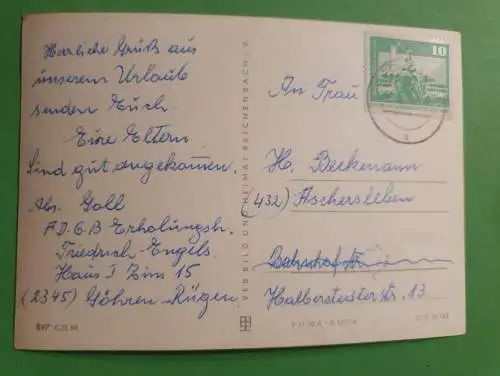 Herzliche Grüß aus
unserem Urlaub
senden Euch
Eure Eltern
Sind gut angekommen.
Abs. Goll
F.D.G.B Erholungsh.
Friedrich-Engels
Haus I Zim 15
(2345) Göhren-Rügen
VEB BILD UND HEIMAT REICHENBACH I. V.
10
An Frau
H. Beckemann
(432) Aschersleben
Bahnhof
Halberstedterstr. 13